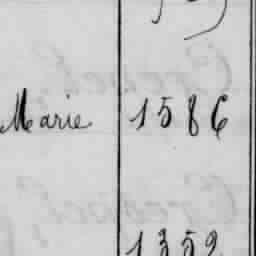 Marie 1586
1352